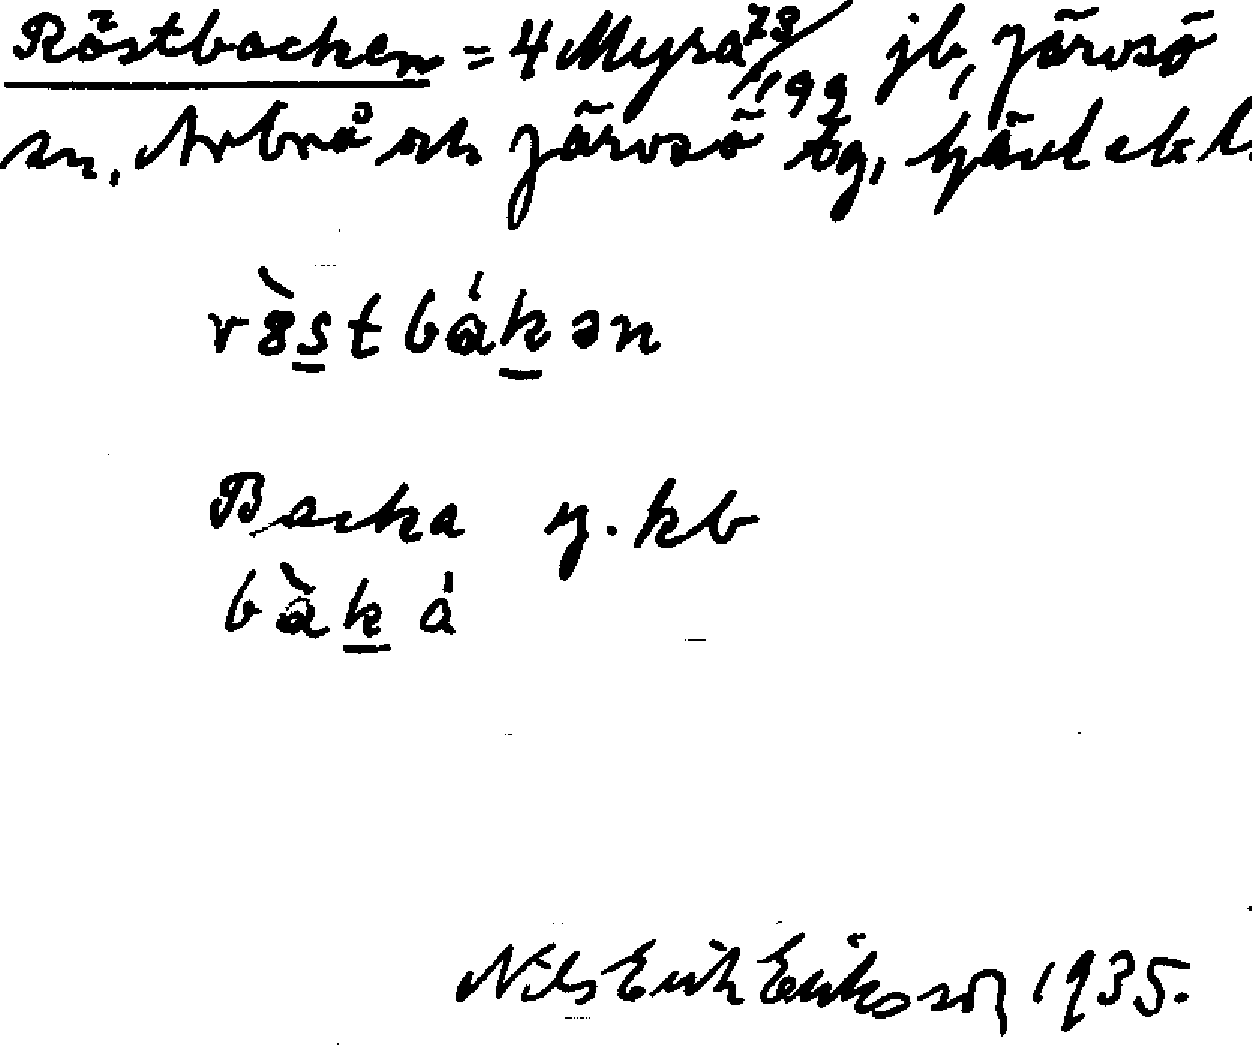 Röstbacken = 4 Myra 73/199 jb, Järvsö
sn. Arbrå och Järvsö tg, Gävlebl.
rö̀stbákən
Backa y. kb
bàká
Nils Erik Eriksson 1935.